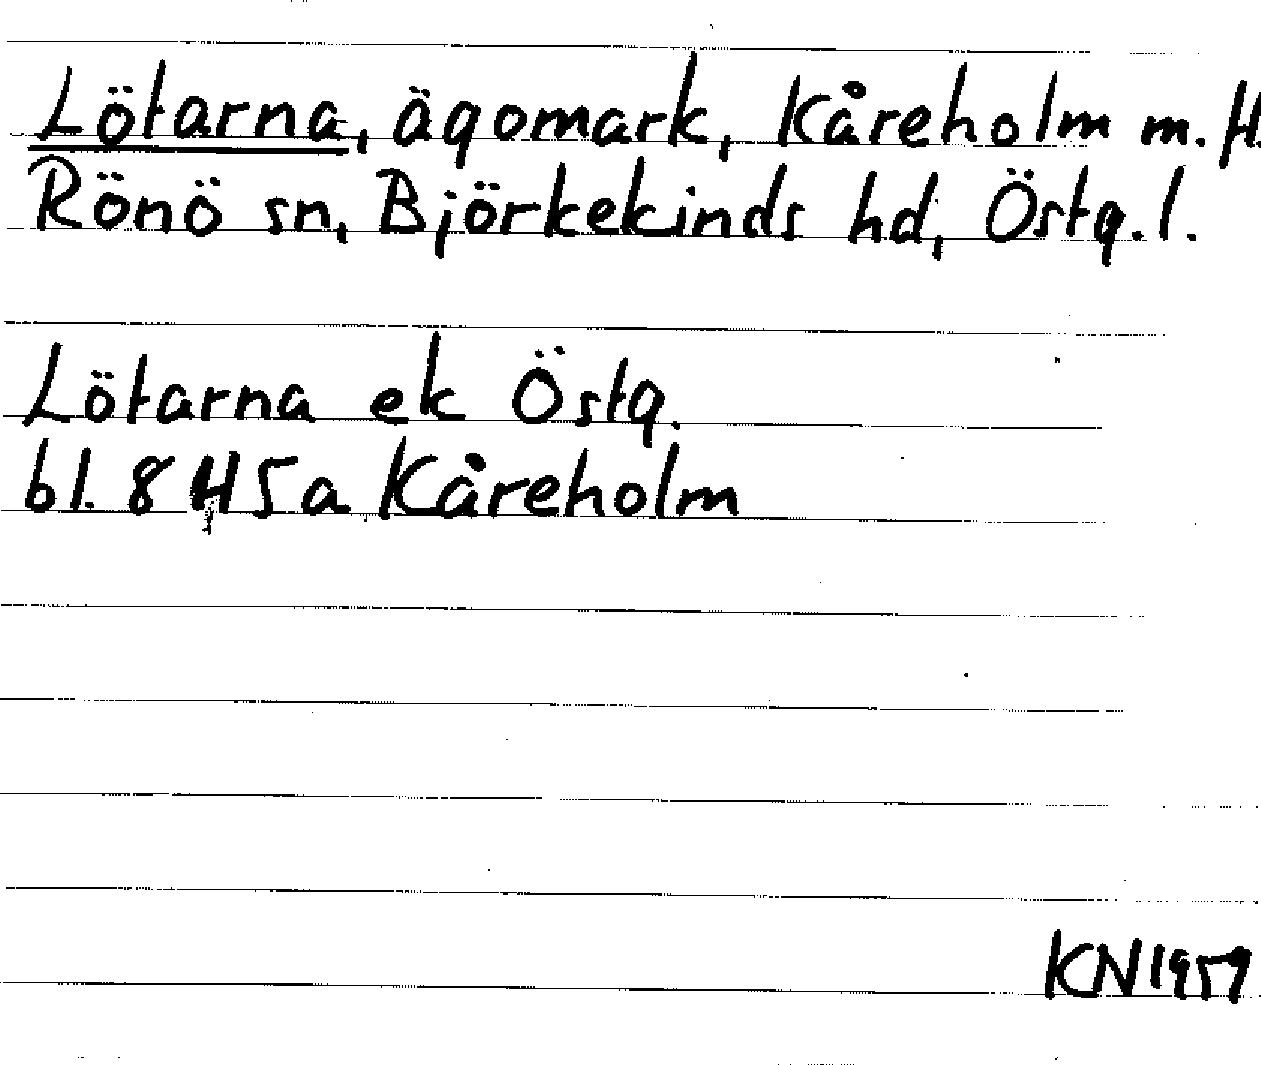 Lötarna, ägomark, Kåreholm m. fl.
Rönö sn, Björkekinds hd, Östg. l.
Lötarna ek Östg.
bl. 8 H5a Kåreholm
KN 1959